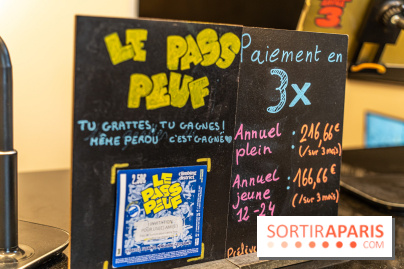 LE PASS
PEUF
TU GRATTES, TU GAGNES!
MÊME PERDU C'EST GAGNÉ
2,50€
climbing district
LE
PASS
PEUF
Paiement en
3x
Annuel plein : 216,66€
(/sur 3 mois)
Annuel jeune 12-24 : 166,66€
(/sur 3 mois)
SORTIRAPARIS
.COM